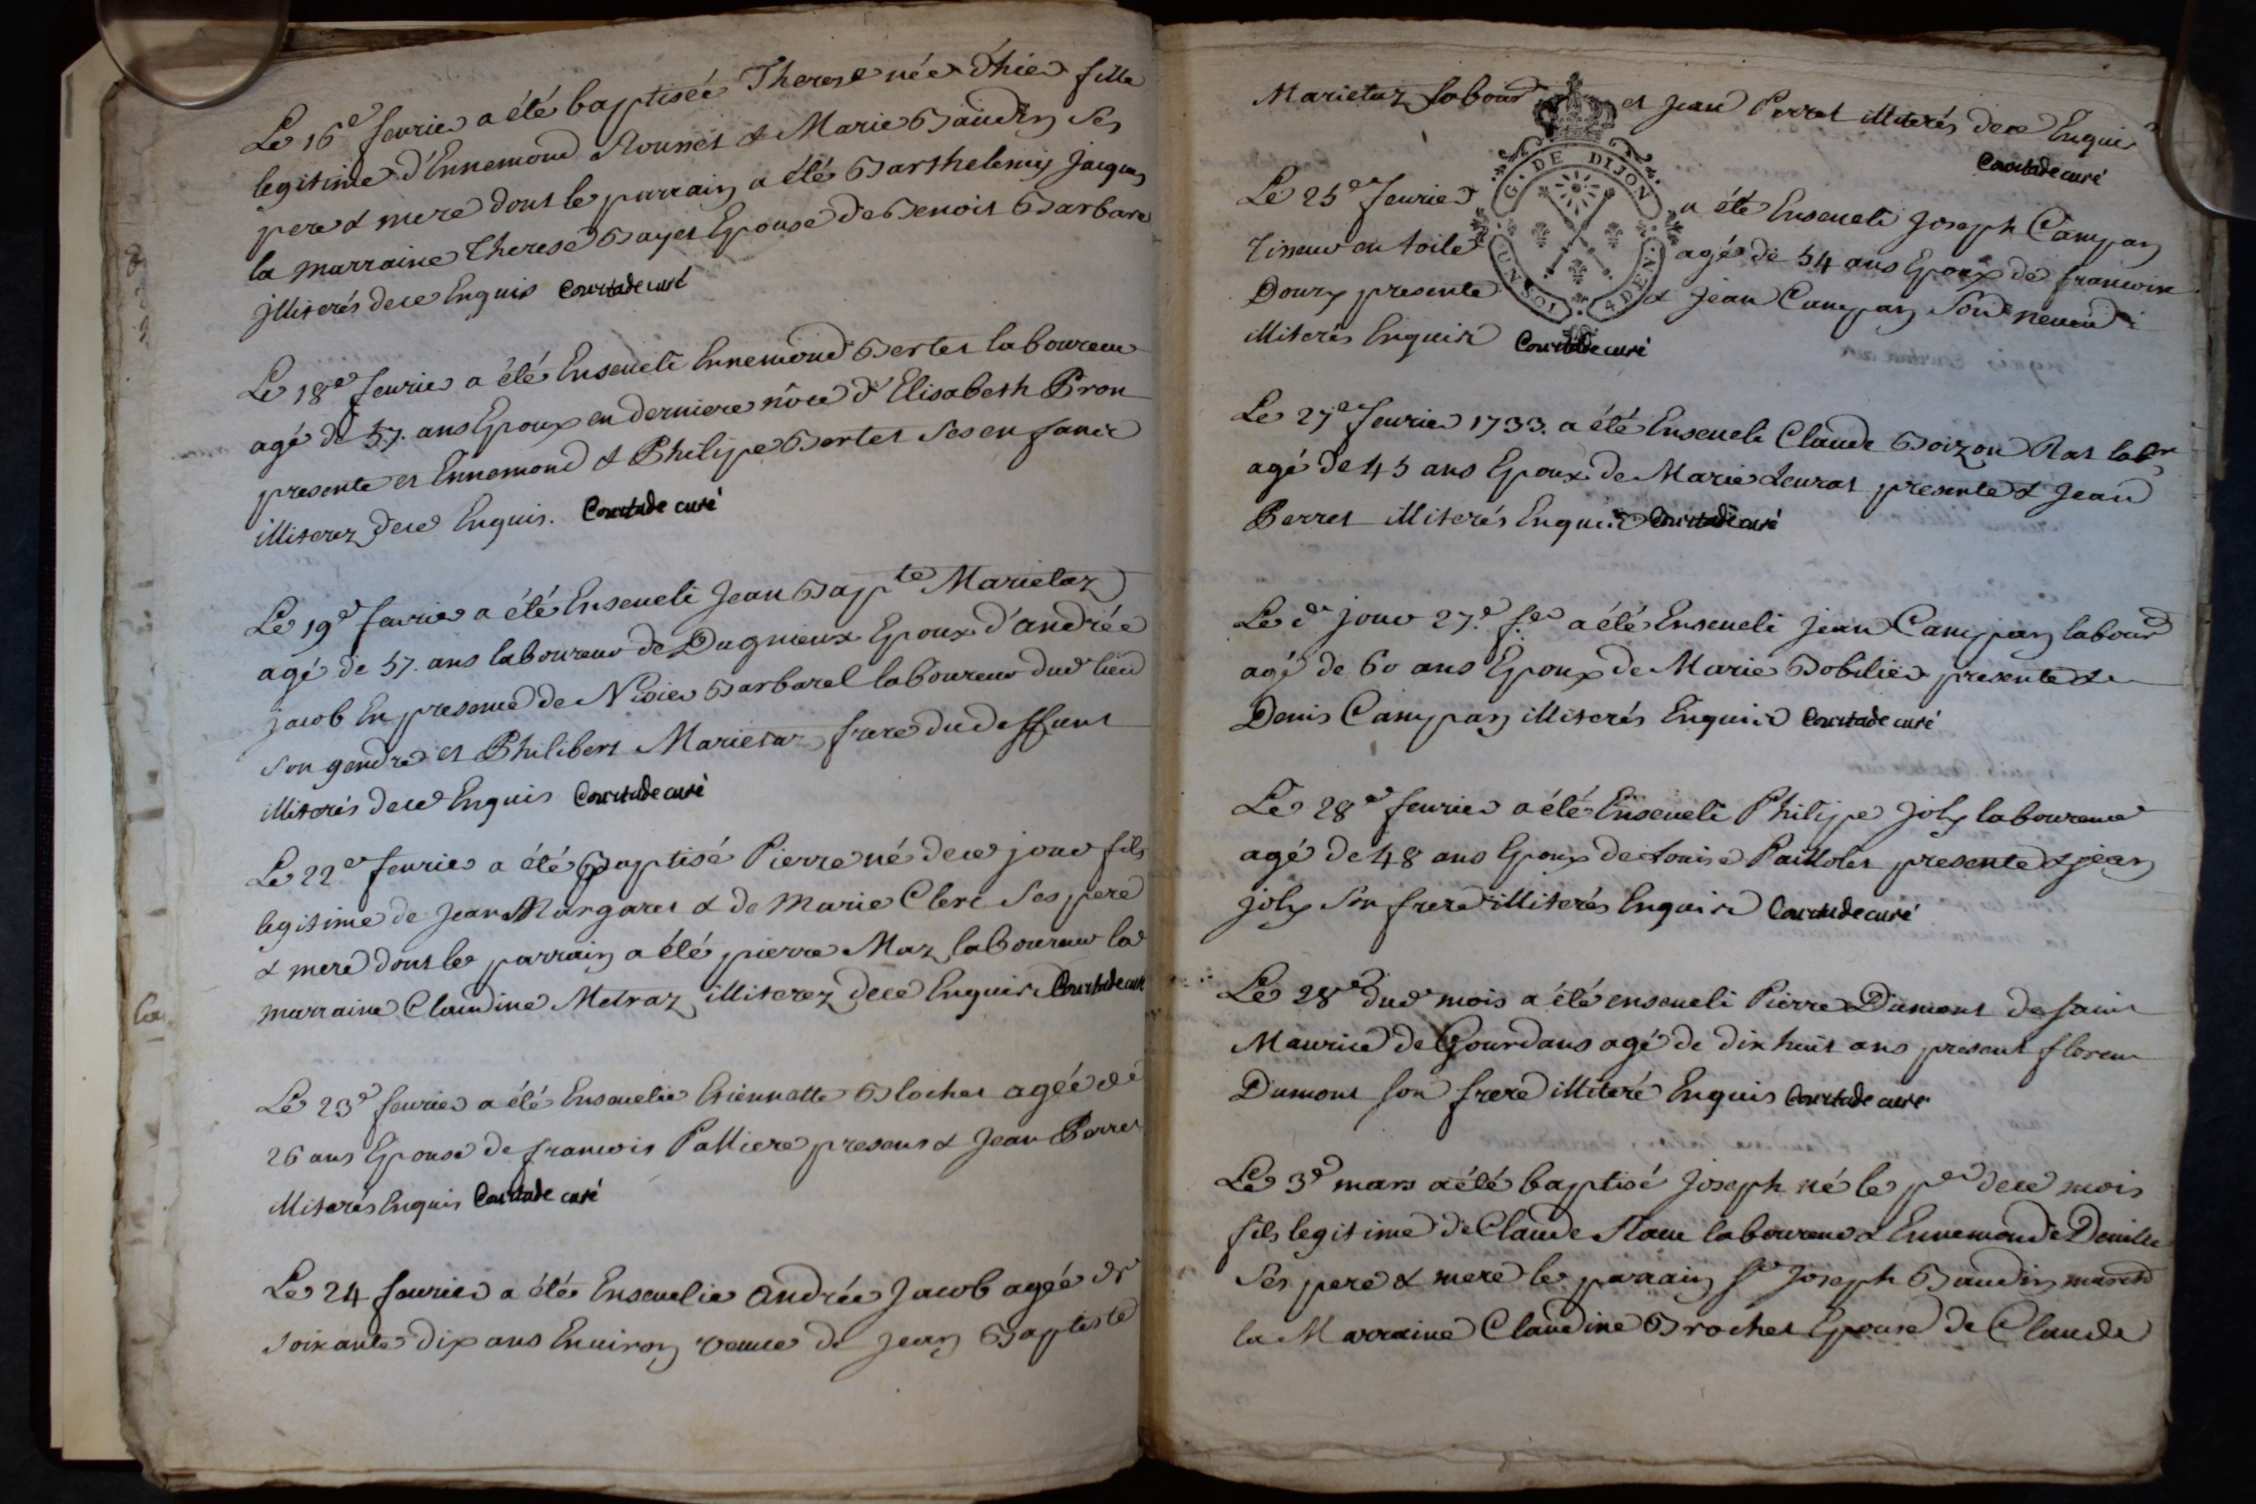 Le 16e feurier a été baptisée Therese née d'hier fille
legitime d'Ennemond Rousset & Marie Baudin Ses
pere & mere dont le parrain a été Barthelemy Jacques
la marraine Therese Bayet Epouse de Benoit Barbare
jlliterés de ce Enquis Courtade curé
Le 18e feurier a été Enseueli Ennemond Bertet laboureur
agé de 57. ans Epoux en derniere nôce d'Elisabeth Bron
presente et Ennemond & Philipe Bertet Ses enfans
illiterez de ce Enquis. Courtade curé
Le 19e feurier a été Enseueli Jean Bapte Marietaz
agé de 57. ans laboureur de Dagnieux Epoux d'andrée
jacob En presence de Barbarel laboureur dud lieu
son gendre et Philibert Marietaz frere du deffunt
illiterés de ce Enquis Courtade curé
Le 22e feurier a été Baptisé Pierre né de ce jour fils
legitime de Jean Margaret & de Marie Clerc Ses pere
& mere dont le parrain a été pierre Maz laboureur la
marraine Claudine Metraz illiterez de ce Enquis Courtade curé
Le 23e feurier a été Enseuelie Etiennette Blochet agée de
26 ans Epouse de francois Palliere present & Jean Perret
illiterés Enquis Courtade curé
Le 24 feurier a été Enseuelie andrée Jacob agée de
soixante dix ans Enuiron veuue de Jean Baptiste
Marietaz labourr et Jean Perret illiterés de ce Enquis
Courtade curé
G. DE DIJON
UN SOL 4 DEN.
Le 25e feurier a été Enseueli Joseph Campan
Tisseur en toile agé de 54 ans Epoux de francoise
Doury presente & Jean Campan Son neueu
illiterés Enquis Courtade curé
Le 27e feurier 1733. a été Enseueli Claude Boizon Rat labr
agé de 45 ans Epoux de Marie Leurat presente & Jean
Perret illiterés Enquis Courtade curé
Le dr jour 27e. fer a été Enseueli Jean Campan labour
agé de 60 ans Epoux de Marie Bobilier presente &
Denis Campan illiterés Enquis Courtade curé
Le 28e feurier a été Enseueli Philipe Joly laboureur
agé de 48 ans Epoux de Louise Paillolet presente & jean
joly Son frere illiterés Enquis Courtade curé
Le 28e dud mois a été enseueli Pierre Dumont de saint
Maurice de Gourdans agé de dix huit ans present
Dumont son frere illiteré Enquis Courtade curé
Le 3e mars a été baptisé Joseph né le per de ce mois
fils legitime de Claude laboureur & Ennemonde
Ses pere & mere le parrain sr Joseph Baudin march
la Marraine Claudine Brochet Epouse de Claude